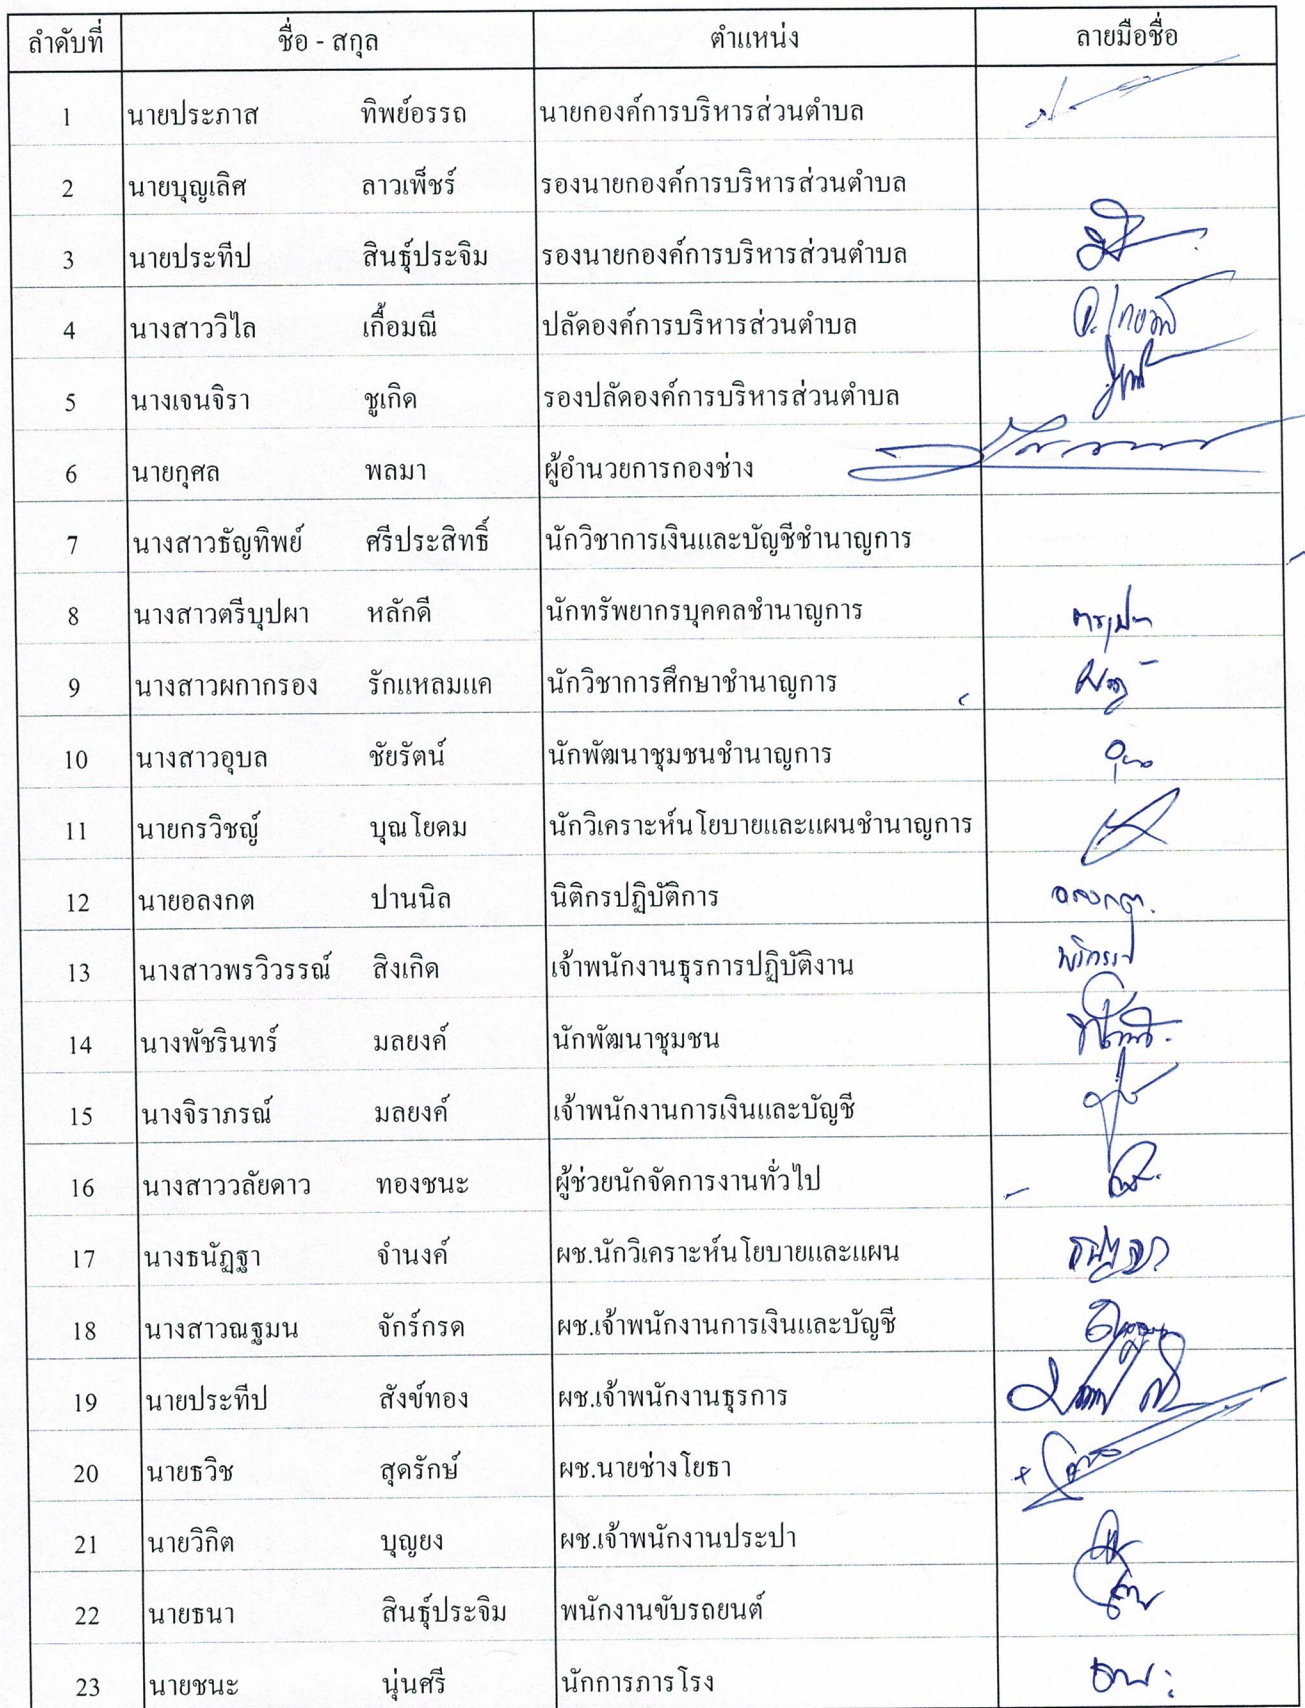 ลำดับที่ ชื่อ - สกุล ตำแหน่ง ลายมือชื่อ
1 นายประภาส ทิพย์อรรถ นายกองค์การบริหารส่วนตำบล
2 นายบุญเลิศ ลาวเพ็ชร์ รองนายกองค์การบริหารส่วนตำบล
3 นายประทีป สินธุ์ประจิม รองนายกองค์การบริหารส่วนตำบล
4 นางสาววิไล เกื้อมณี ปลัดองค์การบริหารส่วนตำบล
5 นางเจนจิรา ชูเกิด รองปลัดองค์การบริหารส่วนตำบล
6 นายกุศล พลมา ผู้อำนวยการกองช่าง
7 นางสาวธัญทิพย์ ศรีประสิทธิ์ นักวิชาการเงินและบัญชีชำนาญการ
8 นางสาวตรีบุปผา หลักดี นักทรัพยากรบุคคลชำนาญการ
9 นางสาวผกากรอง รักแหลมแค นักวิชาการศึกษาชำนาญการ
10 นางสาวอุบล ชัยรัตน์ นักพัฒนาชุมชนชำนาญการ
11 นายกรวิชญ์ บุณโยดม นักวิเคราะห์นโยบายและแผนชำนาญการ
12 นายอลงกต ปานนิล นิติกรปฏิบัติการ อลงกต.
13 นางสาวพรวิวรรณ์ สิงเกิด เจ้าพนักงานธุรการปฏิบัติงาน
14 นางพัชรินทร์ มลยงค์ นักพัฒนาชุมชน
15 นางจิราภรณ์ มลยงค์ เจ้าพนักงานการเงินและบัญชี
16 นางสาววลัยดาว ทองชนะ ผู้ช่วยนักจัดการงานทั่วไป
17 นางธนัฏฐา จำนงค์ ผช.นักวิเคราะห์นโยบายและแผน
18 นางสาวณฐมน จักร์กรด ผช.เจ้าพนักงานการเงินและบัญชี
19 นายประทีป สังข์ทอง ผช.เจ้าพนักงานธุรการ
20 นายธวิช สุดรักษ์ ผช.นายช่างโยธา
21 นายวิกิต บุญยง ผช.เจ้าพนักงานประปา
22 นายธนา สินธุ์ประจิม พนักงานขับรถยนต์
23 นายชนะ นุ่นศรี นักการภารโรง